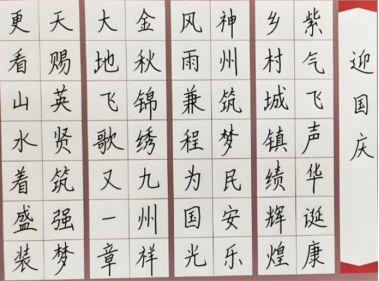 迎国庆
紫气飞声华诞康
乡村城镇绩辉煌
神州筑梦民安乐
风雨兼程为国光
金秋锦绣九州祥
大地飞歌又一章
天赐英贤筑强梦
更看山水着盛装